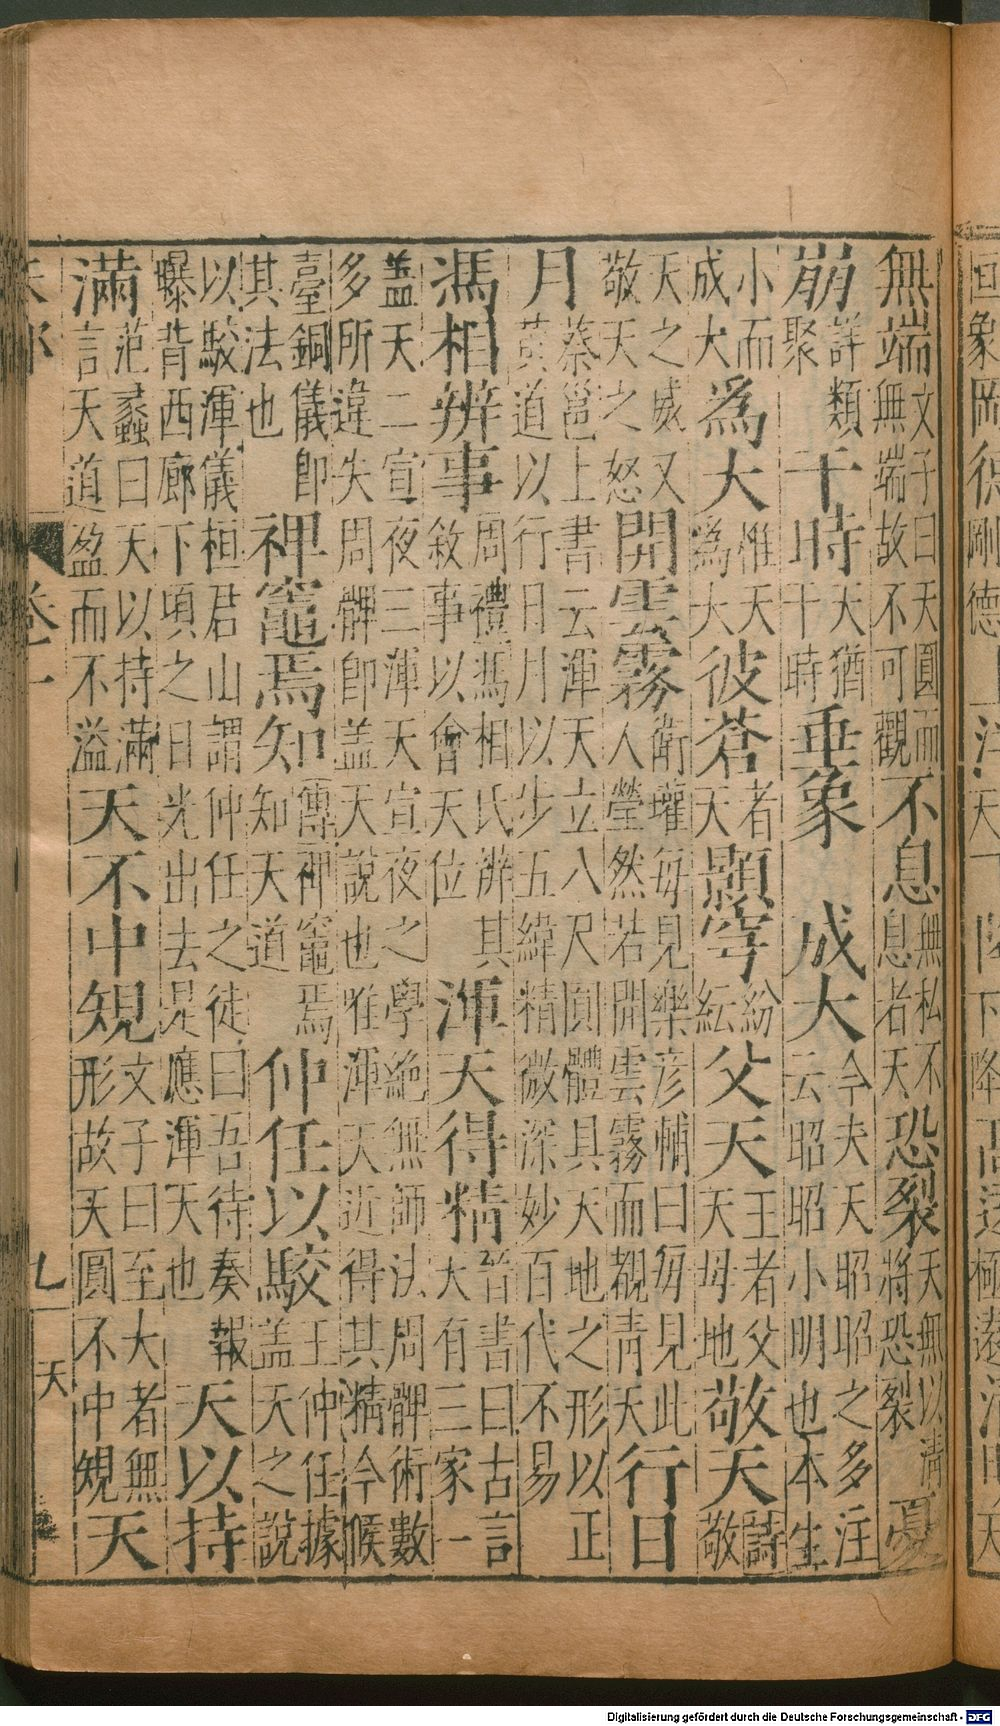 無端文子曰天圓而無端故不可觀不息無私不息者天恐裂天無以清將恐裂憂
崩詳類聚干時天猶干時垂象 成大今夫天昭昭之多注云昭昭小明也本生
小而成大爲大惟天為大彼蒼者天顯穹紛紜父天王者父天母地敬天詩敬
天之威又敬天之怒開雲霧衛瓘每見樂彥輔曰每見此人瑩然若開雲霧而覩青天行日
月蔡邕上書云渾天立八尺圓體具天地之形以正黃道以行日月以步五緯精微深妙百代不易
馮相辨事周禮馮相氏辨其敘事以會天位渾天得精晉書曰古言大有三家一
盖天二宣夜三渾天宣夜之學絶無師法周髀術數多所違失周髀即盖天說也唯渾天近得其精今候
臺銅儀即其法也裨竈焉知傳裨竈焉知天道仲任以駮王仲任據盖天之說
以駮渾儀桓君山謂仲任之徒曰吾待奏報曝背西廊下頃之日光出去是應渾天也天以持
滿范蠡曰天以持滿言天道盈而不溢天不中規文子曰至大者無形故天圓不中規天
卷一 九 天
Digitalisierung gefördert durch die Deutsche Forschungsgemeinschaft - DFG